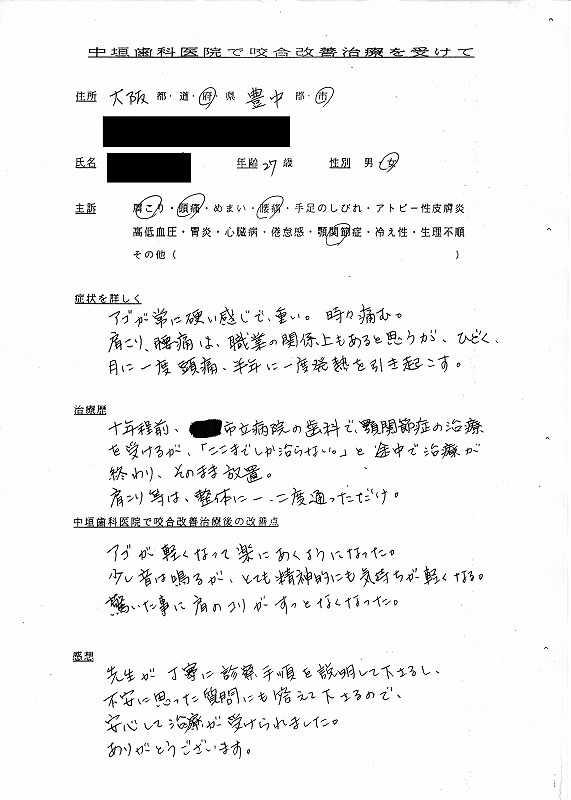 中垣歯科医院で咬合改善治療を受けて
住所 大阪 都・道・府・県 豊中 郡・市
氏名 年齢 27 歳 性別 男・女
主訴 肩こり・頭痛・めまい・腰痛・手足のしびれ・アトピー性皮膚炎
高低血圧・胃炎・心臓病・倦怠感・顎関節症・冷え性・生理不順
その他( )
症状を詳しく
アゴが常に硬い感じで、重い。時々痛む。
肩こり、腰痛は、職業の関係上もあると思うが、ひどく、
月に一度頭痛、半年に一度発熱を引き起こす。
治療歴
十年程前、 市立病院の歯科で、顎関節症の治療
を受けるが、「ここまでしか治らない。」と途中で治療が
終わり、そのまま放置。
肩こり等は、整体に一、二度通っただけ。
中垣歯科医院で咬合改善治療後の改善点
アゴが軽くなって楽にあくようになった。
少し音は鳴るが、とても精神的にも気持ちが軽くなる。
驚いた事に肩のコリがすっとなくなった。
感想
先生が丁寧に診察手順を説明して下さるし、
不安に思った質問にも答えて下さるので、
安心して治療が受けられました。
ありがとうございます。